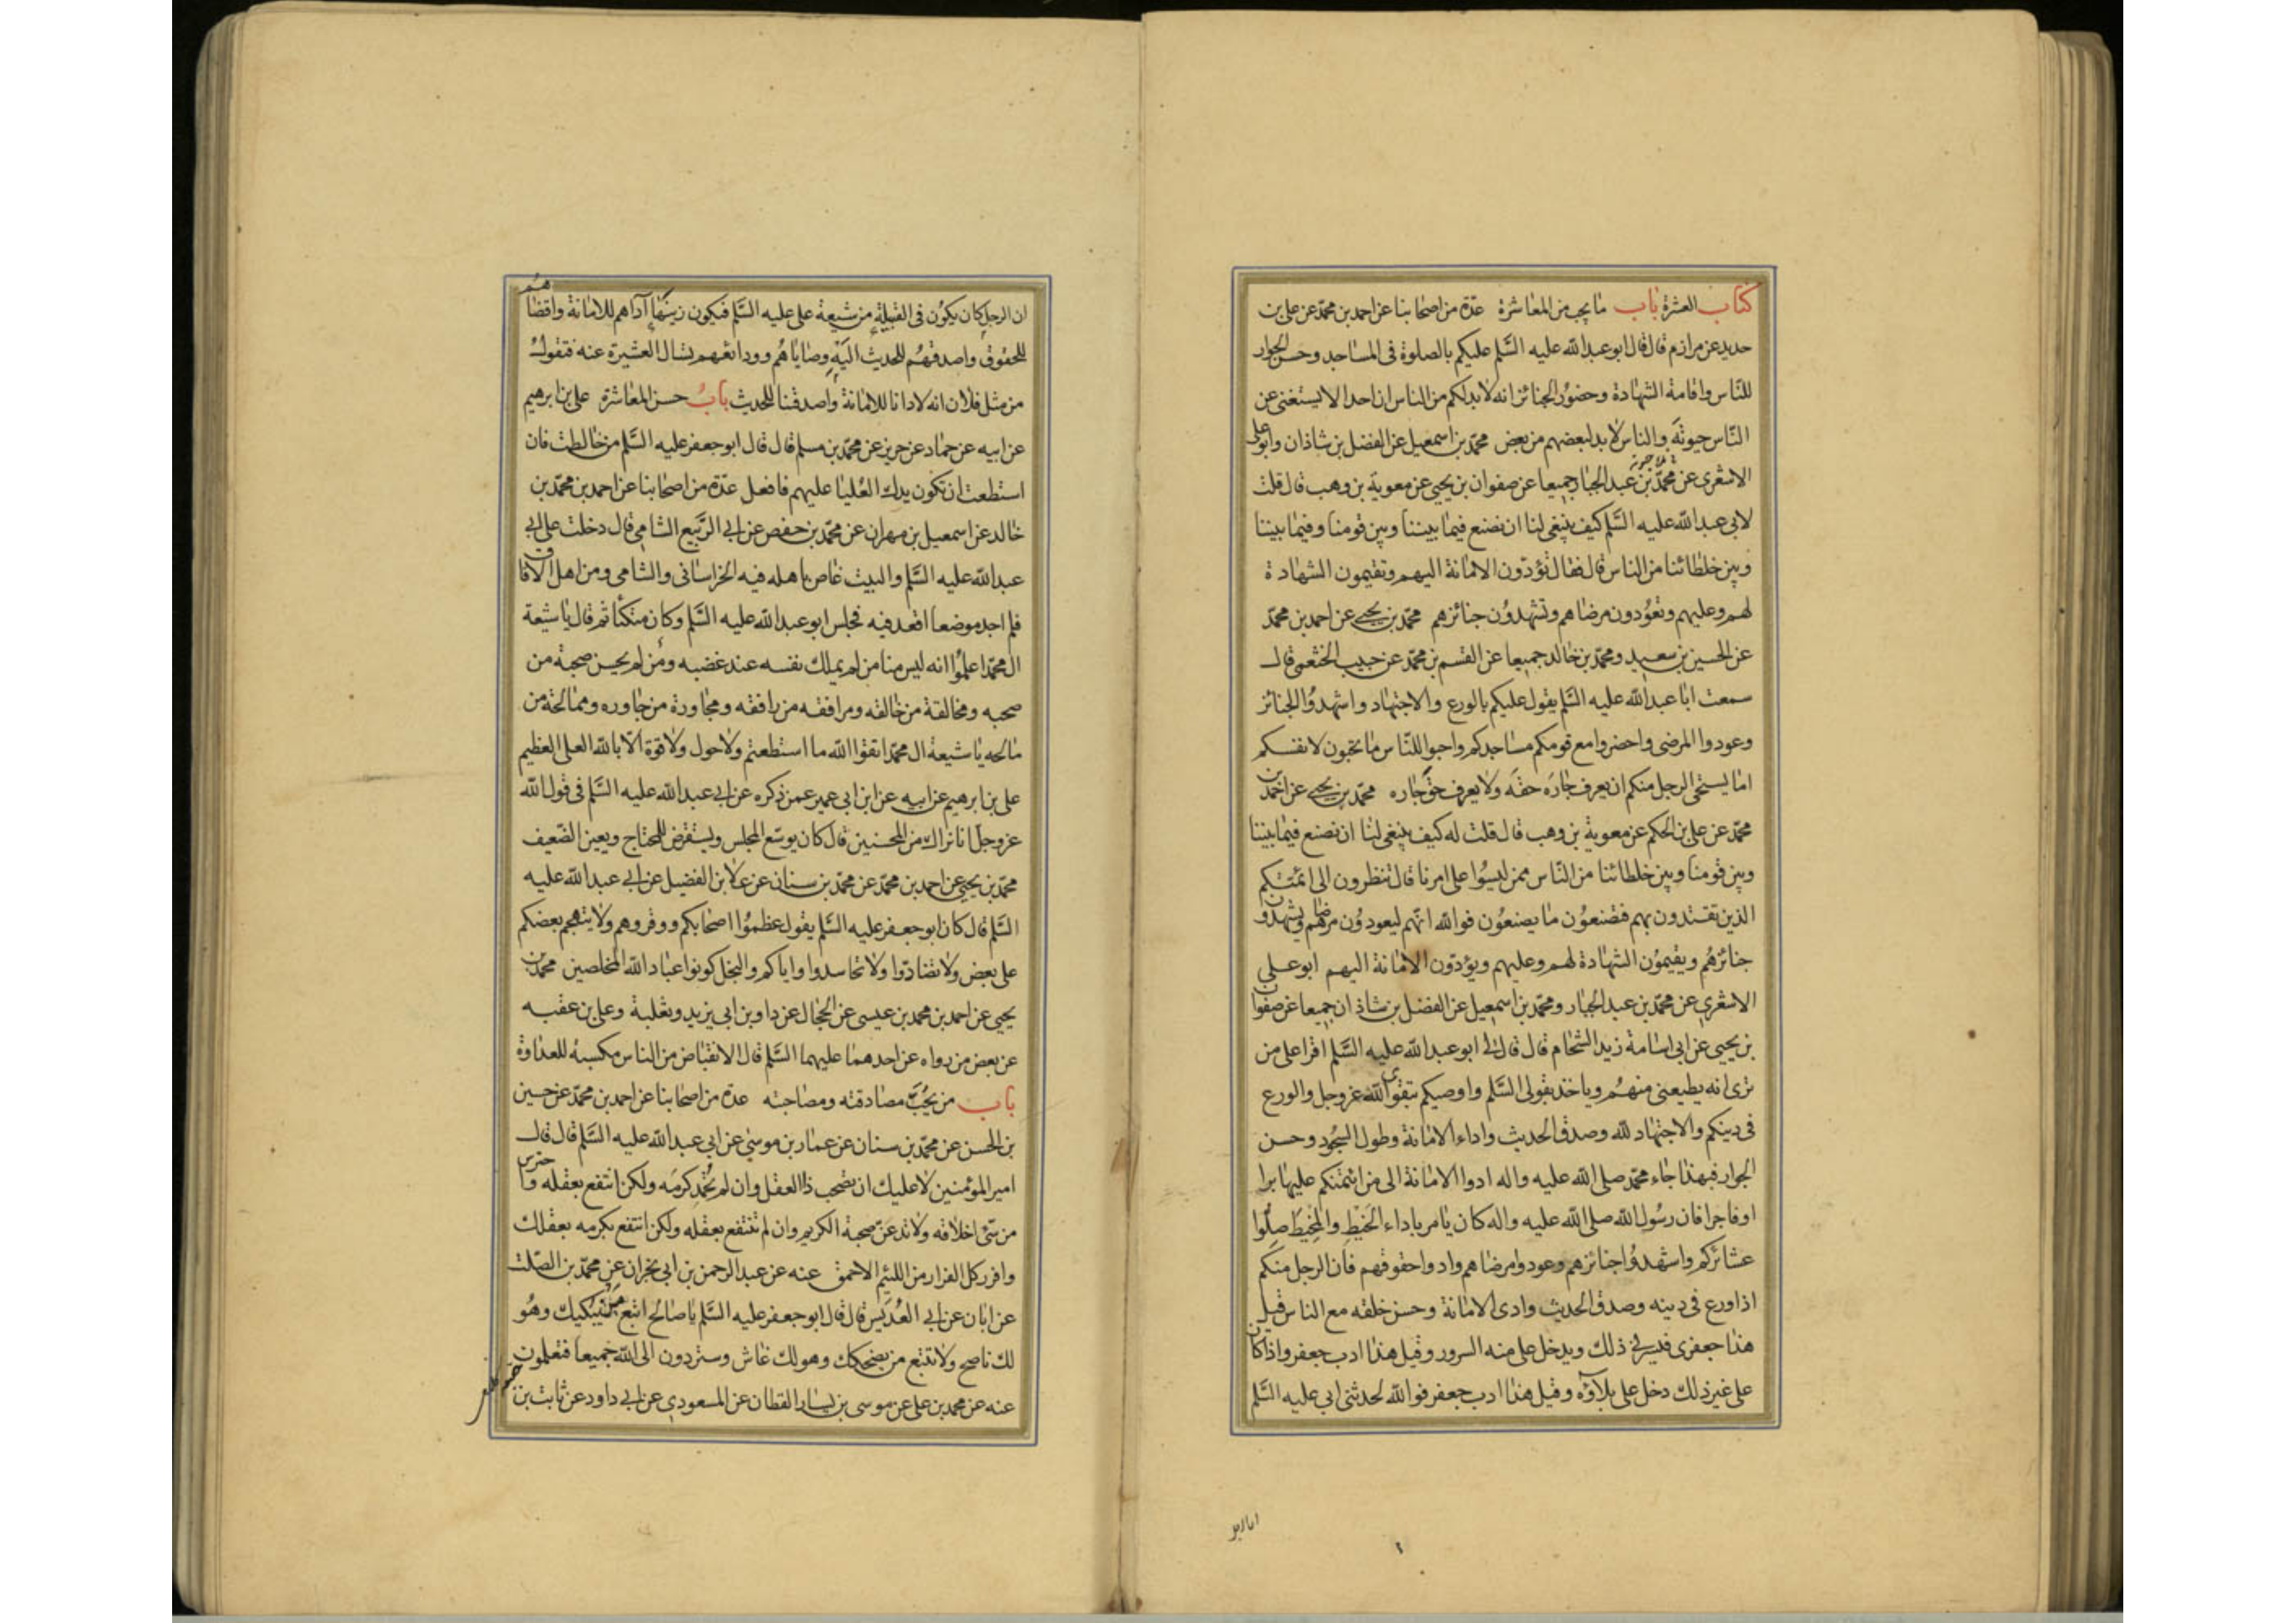 كتاب العشرة باب ما يجب من المعاشرة عدة من اصحابنا عن احمد بن محمد عن علي بن
حديد عن مرازم قال قال ابو عبد الله عليه السلم عليكم بالصلوة فى المساجد وحسن الجوار
للناس واقامة الشهادة وحضور الجنائز انه لا بد لكم من الناس ان احدا لا يستغنى عن
الناس حيوته والناس لا بد لبعضهم من بعض محمد بن اسمعيل عن الفضل بن شاذان وابو على
الاشعرى عن محمد بن عبد الجبار جميعا عن صفوان بن يحيى عن معوية بن وهب قال قلت
لابى عبد الله عليه السلم كيف ينبغى لنا ان نصنع فيما بيننا وبين قومنا وفيما بيننا
وبين خلطائنا من الناس قال فقال تؤدون الامانة اليهم وتقيمون الشهادة
لهم وعليهم وتعودون مرضاهم وتشهدون جنائزهم محمد بن يحيى عن احمد بن محمد
عن الحسين بن سعيد ومحمد بن خالد جميعا عن القسم بن محمد عن حبيب الخثعمى قال
سمعت ابا عبد الله عليه السلم يقول عليكم بالورع والاجتهاد واشهدوا الجنائز
وعودوا المرضى واحضروا مع قومكم مساجدكم واحبوا للناس ما تحبون لانفسكم
اما يستحى الرجل منكم ان يعرف جاره حقه ولا يعرف حق جاره محمد بن يحيى عن احمد بن
محمد عن على بن الحكم عن معوية بن وهب قال قلت له كيف ينبغى لنا ان نصنع فيما بيننا
وبين قومنا وبين خلطائنا من الناس ممن ليسوا على امرنا قال تنظرون الى ائمتكم
الذين تقتدون بهم فتصنعون ما يصنعون فوالله انهم ليعودون مرضاهم ويشهدون
جنائزهم ويقيمون الشهادة لهم وعليهم ويؤدون الامانة اليهم ابو على
الاشعرى عن محمد بن عبد الجبار ومحمد بن اسمعيل عن الفضل بن شاذان جميعا عن صفوان
بن يحيى عن ابى اسامة زيد الشحام قال قال لى ابو عبد الله عليه السلم اقرا على من
ترى انه يطيعنى منهم وياخذ بقولى السلم واوصيكم بتقوى الله عز وجل والورع
فى دينكم والاجتهاد لله وصدق الحديث واداء الامانة وطول السجود وحسن
الجوار فبهذا جاء محمد صلى الله عليه واله ادوا الامانة الى من ائتمنكم عليها برا
او فاجرا فان رسول الله صلى الله عليه واله كان يامر باداء الخيط والمخيط صلوا
عشائركم واشهدوا جنائزهم وعودوا مرضاهم وادوا حقوقهم فان الرجل منكم
اذا ورع فى دينه وصدق الحديث وادى الامانة وحسن خلقه مع الناس قيل
هذا جعفرى فيسرنى ذلك ويدخل على منه السرور وقيل هذا ادب جعفر واذا كان
على غير ذلك دخل على بلاؤه وقيل هذا ادب جعفر فوالله لحدثنى ابى عليه السلم
ان الرجل كان يكون فى القبيلة من شيعة على عليه السلم فيكون زينها آداهم للامانة واقضاهم
للحقوق واصدقهم للحديث اليه وصاياهم وودائعهم تسال العشيرة عنه فتقول
من مثل فلان انه لادانا للامانة واصدقنا للحديث باب حسن المعاشرة على بن ابرهيم
عن ابيه عن حماد عن حريز عن محمد بن مسلم قال قال ابو جعفر عليه السلم من خالطت فان
استطعت ان تكون يدك العليا عليهم فافعل عدة من اصحابنا عن احمد بن محمد بن
خالد عن اسمعيل بن مهران عن محمد بن حفص عن ابى الربيع الشامى قال دخلت على ابى
عبد الله عليه السلم والبيت غاص باهله فيه الخراسانى والشامى ومن اهل الافاق
فلم اجد موضعا اقعد فيه فجلس ابو عبد الله عليه السلم وكان متكئا ثم قال يا شيعة
ال محمد اعلموا انه ليس منا من لم يملك نفسه عند غضبه ومن لم يحسن صحبة من
صحبه ومخالقة من خالقه ومرافقه من رافقه ومجاورة من جاوره وممالحة من
مالحه يا شيعة ال محمد اتقوا الله ما استطعتم ولا حول ولا قوة الا بالله العلى العظيم
على بن ابرهيم عن ابيه عن ابن ابى عمير عمن ذكره عن ابى عبد الله عليه السلم فى قول الله
عز وجل انا نراك من المحسنين قال كان يوسع المجلس ويستقرض للمحتاج ويعين الضعيف
محمد بن يحيى عن احمد بن محمد عن محمد بن سنان عن علا بن الفضيل عن ابى عبد الله عليه
السلم قال كان ابو جعفر عليه السلم يقول عظموا اصحابكم ووقروهم ولا يتهجم بعضكم
على بعض ولا تضادوا ولا تحاسدوا واياكم والبخل كونوا عباد الله المخلصين محمد بن
يحيى عن احمد بن محمد بن عيسى عن الحجال عن داود بن ابى يزيد وثعلبة وعلى بن عقبه
عن بعض من رواه عن احدهما عليهما السلم قال الانقباض من الناس مكسبه للعداوة
باب من يجب مصادقته ومصاحبته عدة من اصحابنا عن احمد بن محمد عن حسين
بن الحسن عن محمد بن سنان عن عمار بن موسى عن ابى عبد الله عليه السلم قال قال
امير المؤمنين لا عليك ان تصحب ذا العقل وان لم تحمد كرمه ولكن انتفع بعقله واحترس
من سئ اخلاقه ولا تدعن صحبة الكريم وان لم تنتفع بعقله ولكن انتفع بكرمه بعقلك
وافرر كل الفرار من اللئيم الاحمق عنه عن عبد الرحمن بن ابى نجران عن محمد بن الصلت
عن ابان عن ابى العديس قال قال ابو جعفر عليه السلم يا صالح اتبع من يبكيك وهو
لك ناصح ولا تتبع من يضحكك وهو لك غاش وستردون الى الله جميعا فتعلمون
عنه عن محمد بن على عن موسى بن يسار القطان عن المسعودى عن ابى داود عن ثابت بن